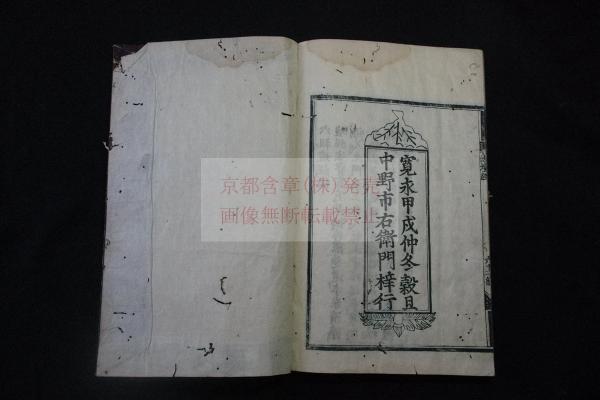 寛永甲戌仲冬穀旦
中野市右衛門梓行
京都含章(株)発売
画像無断転載禁止